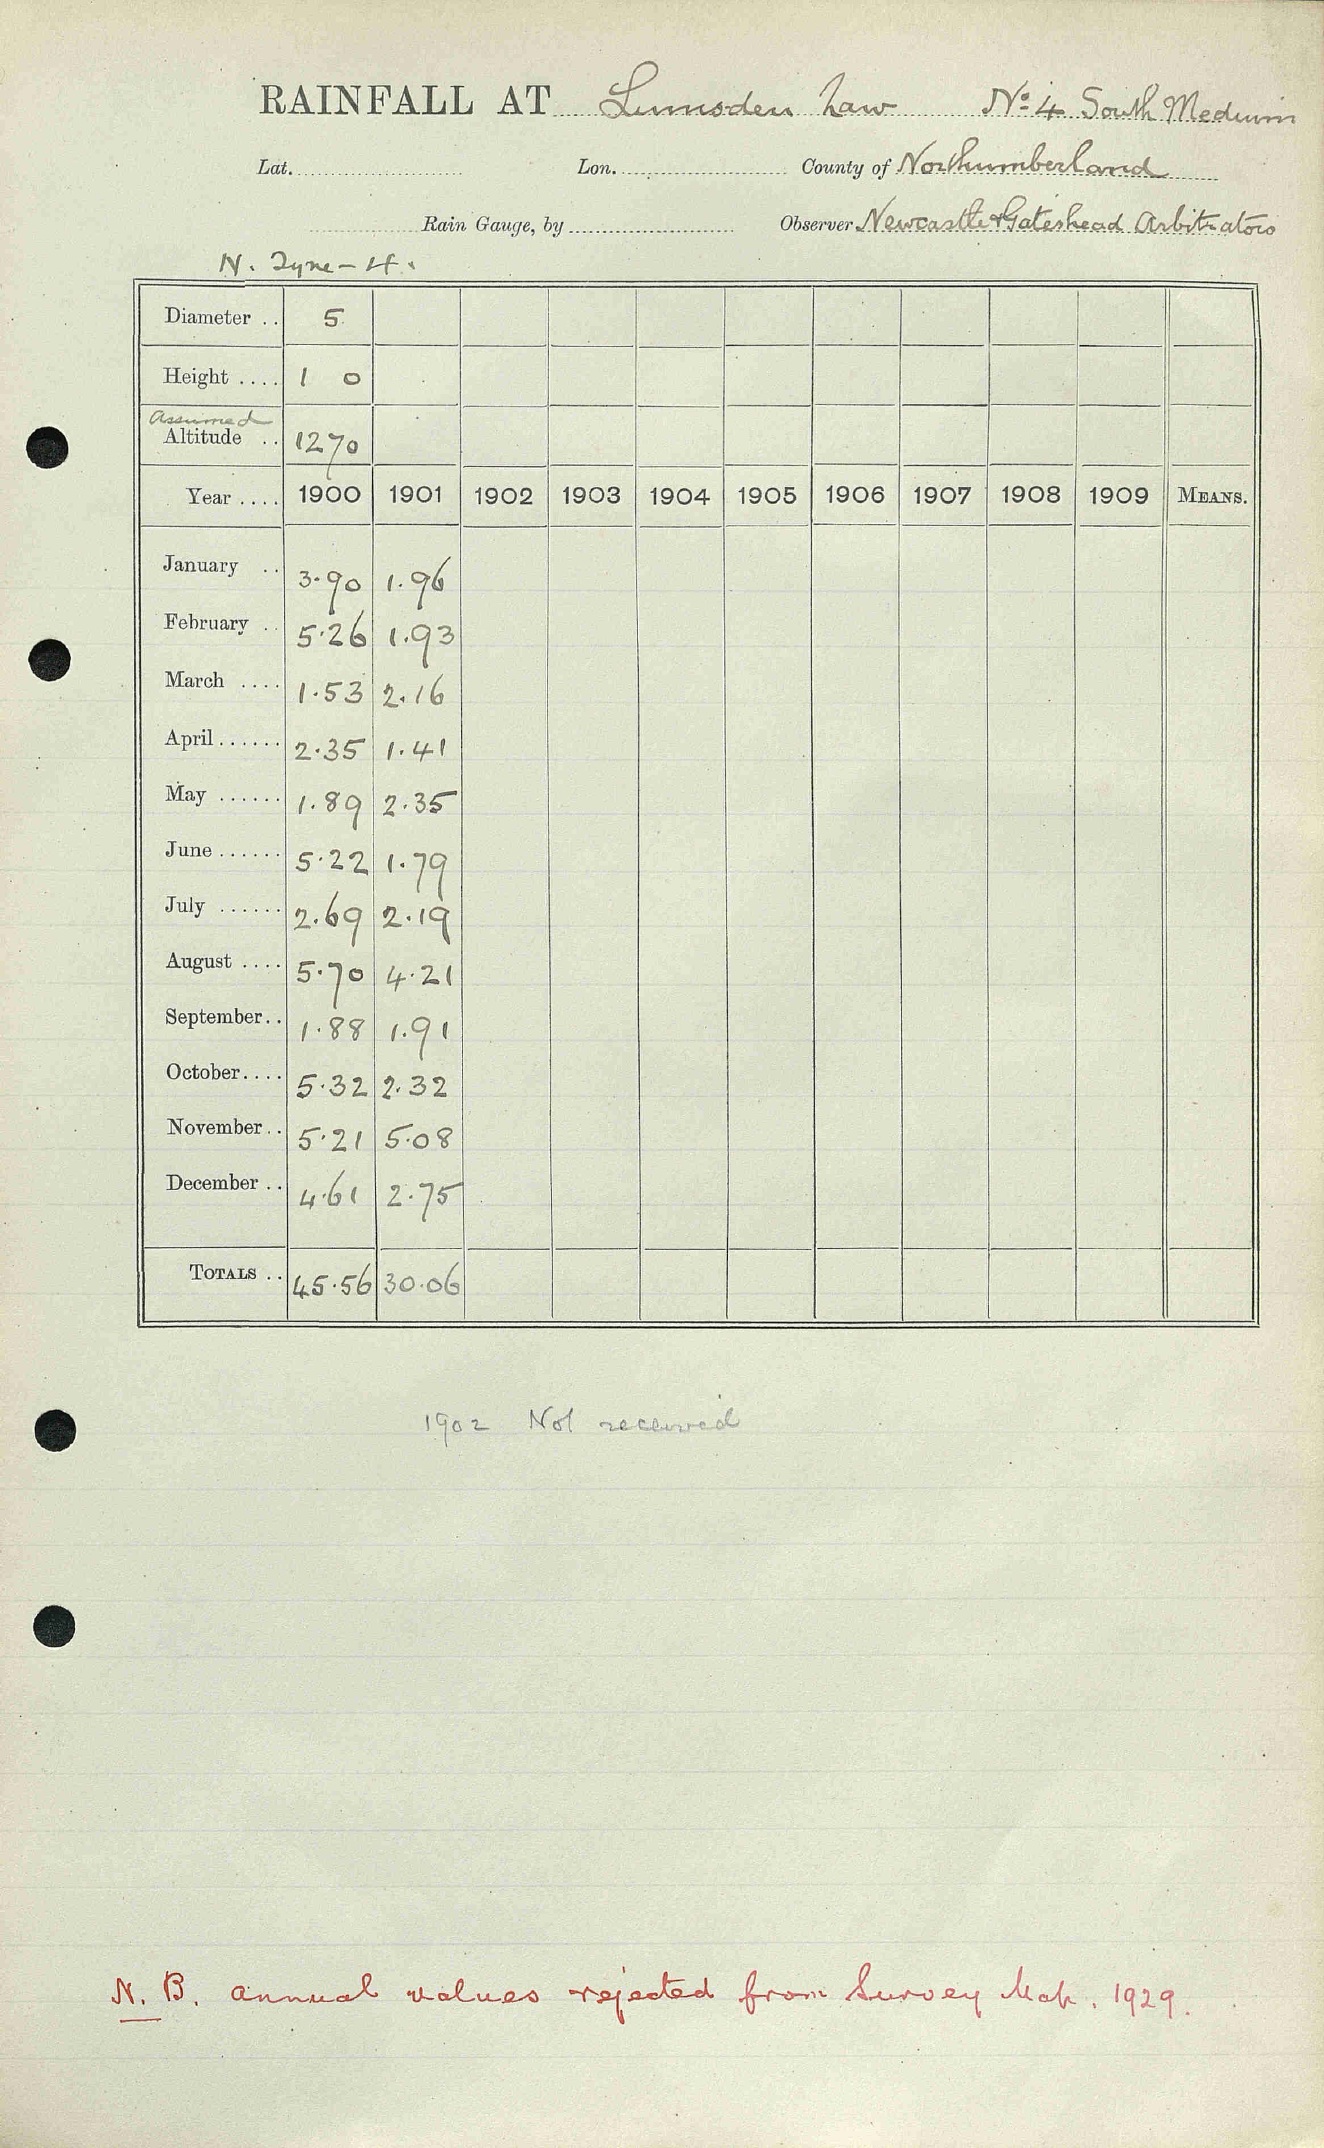 RAINFALL AT Lumsden Law No. 4 South Medium
Lat. Lon. County of Northumberland
Rain Gauge, by Observer Newcastle & Gateshead Arbitrators
N. Tyne - 4.
Diameter .. 5
Height .... 1 0
Assumed
Altitude .. 1270
Year .... 1900 1901 1902 1903 1904 1905 1906 1907 1908 1909 MEANS.
January .. 3.90 1.96
February .. 5.26 1.93
March .... 1.53 2.16
April ...... 2.35 1.41
May ...... 1.89 2.35
June ...... 5.22 1.79
July ...... 2.69 2.19
August .... 5.70 4.21
September .. 1.88 1.91
October .... 5.32 2.32
November .. 5.21 5.08
December .. 4.61 2.75
TOTALS .. 45.56 30.06
1902 Not received
N.B. Annual values rejected from Survey Map. 1929.